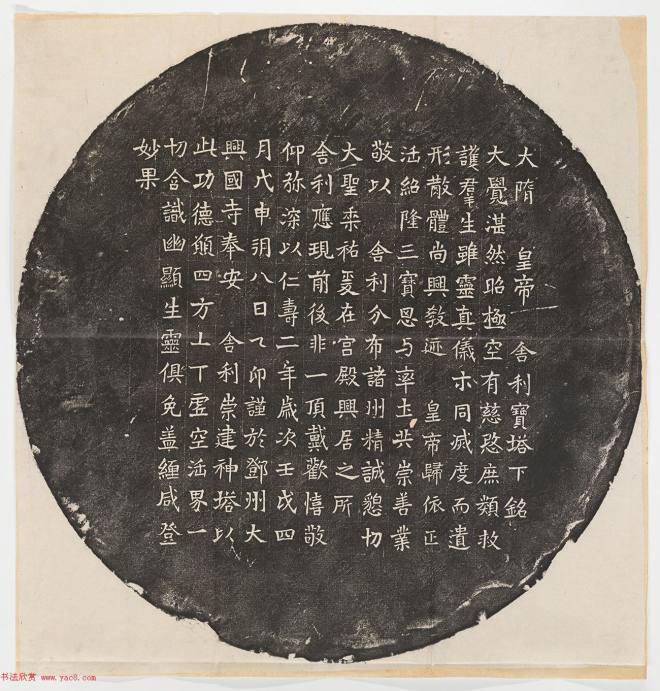 大隋　皇帝　舍利寶塔下銘
大覺湛然昭極空有慈愍庶類救
護羣生雖靈真儀亦同滅度而遺
形散體尚興教迹　皇帝歸依正
法紹隆三寶思与率土共崇善業
敬以　舍利分布諸州精誠懇切
大聖乘祐爰在宮殿興居之所
舍利應現前後非一頂戴歡憘敬
仰弥深以仁壽二年歲次壬戌四
月戊申朔八日乙卯謹於鄧州大
興國寺奉安　舍利崇建神塔以
此功德願四方上下虛空法界一
切含識幽顯生靈俱免蓋纏咸登
妙果
书法欣赏 www.yac8.com